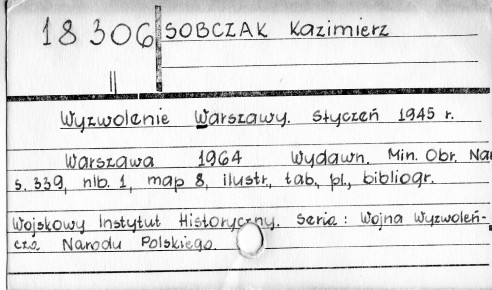 18 306 SOBCZAK Kazimierz
II
Wyzwolenie Warszawy. Styczeń 1945 r.
Warszawa 1964 Wydawn. Min. Obr. Na
s. 339, nlb. 1, map 8, ilustr., tab., pl., bibliogr.
Wojskowy Instytut Historyczny. Seria: Wojna Wyzwoleń-
cza Narodu Polskiego.